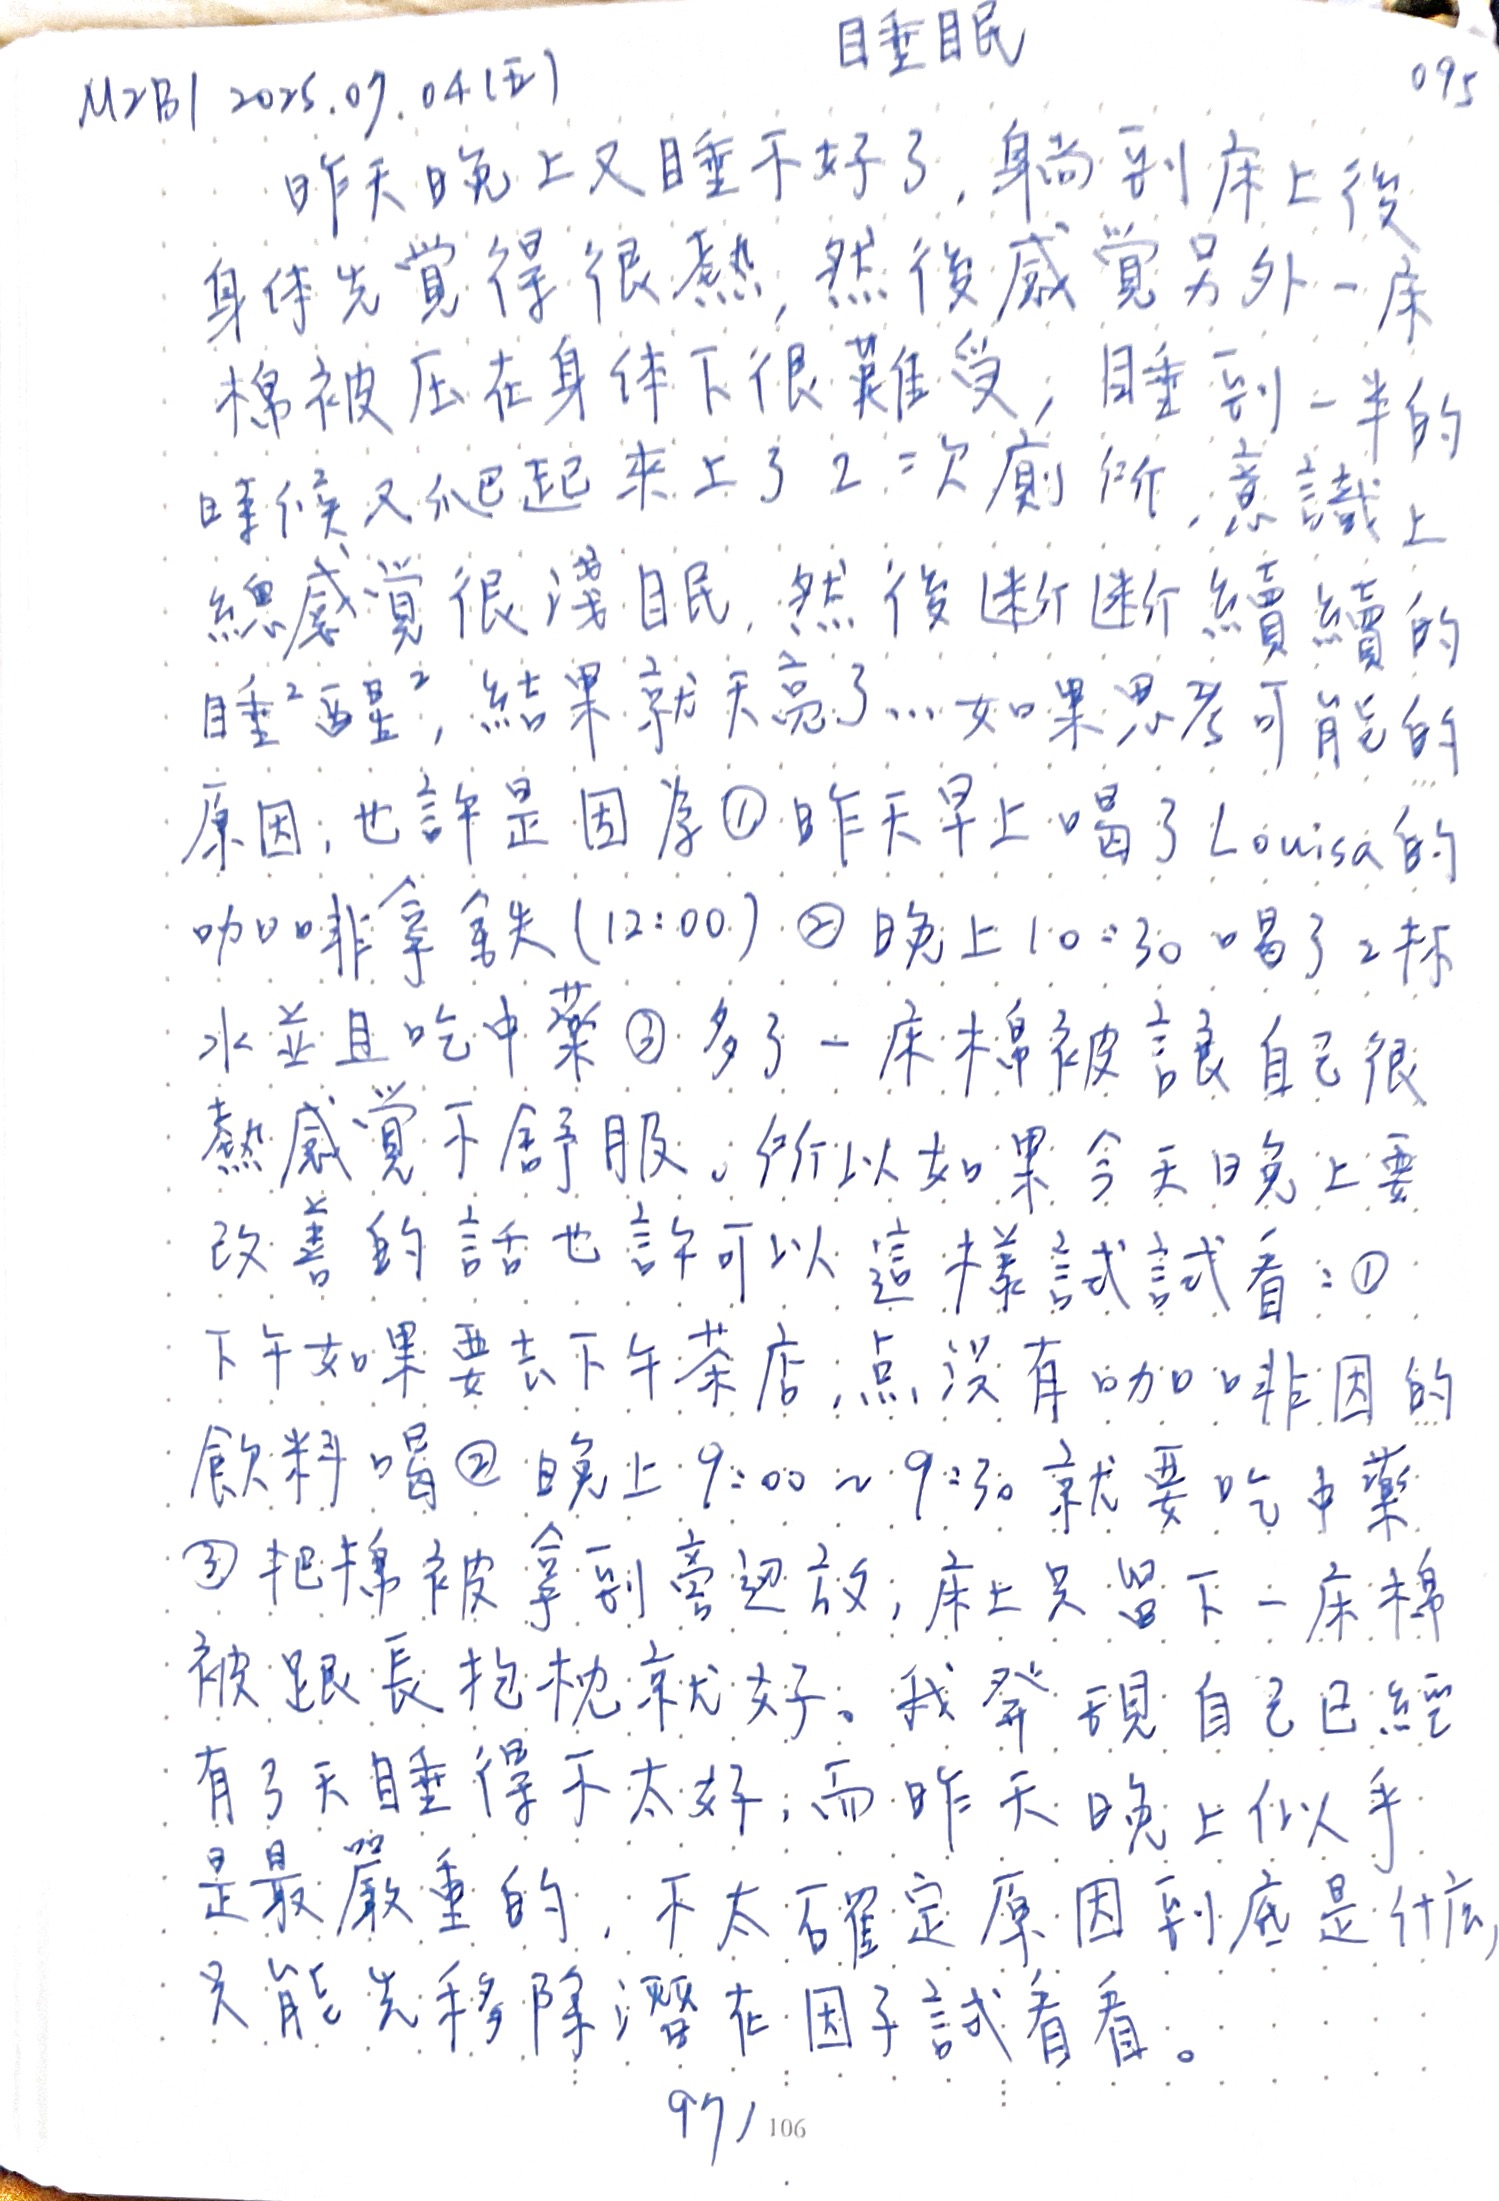 睡眠
095
M2B1 2025.07.04(五)
昨天晚上又睡不好了,躺到床上後
身体先覚得很熱,然後感覚另外一床
棉被压在身体下很難受,睡到一半的
時候又爬起來上了2=次廁所,意識上
總感覚很淺眠,然後断断續續的
睡²醒²,結果就天亮了...如果思考可能的
原因,也許是因为①昨天早上喝了Louisa的
咖啡拿鉄(12:00)②晚上10:30喝了2杯
水並且吃中藥③多了一床棉被讓自己很
熱感覚不舒服。所以如果今天晚上要
改善的話也許可以這樣試試看:①
下午如果要去下午茶店,点没有咖啡因的
飲料喝②晚上9:00~9:30就要吃中藥
③把棉被拿到旁边放,床上只留下一床棉
被跟長抱枕就好。我発現自己已經
有3天睡得不太好,而昨天晚上似乎
是最嚴重的,不太確定原因到底是什広,
只能先移除潛在因子試看看。
97/106